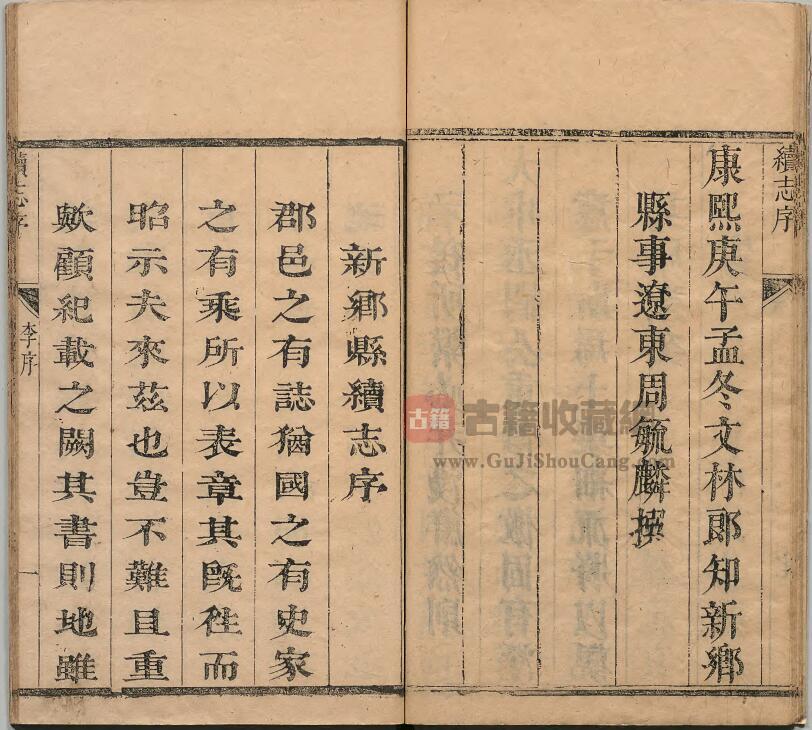 續志序
康熙庚午孟冬文林郎知新鄉
縣事遼東周毓麟撰
新鄉縣續志序
郡邑之有誌猶國之有史家
之有乘所以表章其既徃而
昭示夫來茲也豈不難且重
歟顧紀載之闕其書則地雖
續志序
李序
一
古籍
古籍收藏網
www.GuJiShouCang.com